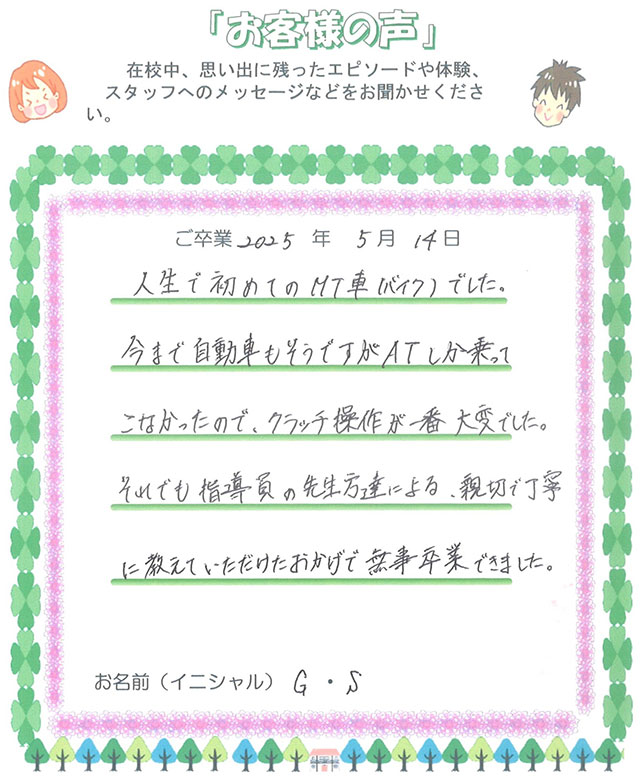 「お客様の声」
在校中、思い出に残ったエピソードや体験、
スタッフへのメッセージなどをお聞かせくださ
い。
ご卒業 2025 年 5月 14日
人生で初めてのMT車(バイク)でした。
今まで自動車もそうですがATしか乗って
こなかったので、クラッチ操作が一番大変でした。
それでも指導員の先生方達による、親切で丁寧
に教えていただけたおかげで無事卒業できました。
お名前（イニシャル） G・S